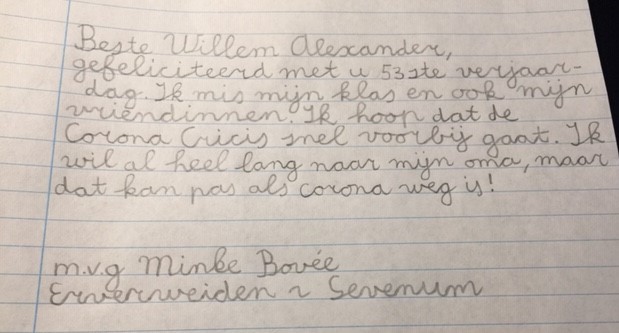 Beste Willem Alexander,
gefeliciteerd met u 53ste verjaar-
dag. Ik mis mijn klas en ook mijn
vriendinnen. Ik hoop dat de
Corona Cricis snel voorbij gaat. Ik
wil al heel lang naar mijn oma, maar
dat kan pas als corona weg is!
m.v.g Minke Bovée
Sevenum